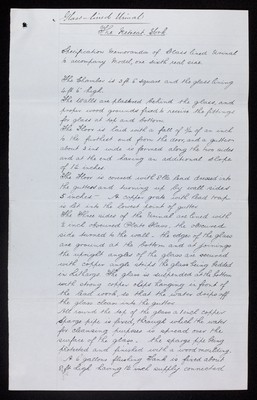 Glass-Lined Urinal.
The Present Work
Specification Memorandum of Glass lined Urinal
to accompany Model, one sixth real size
The Chamber is 5 ft 6 square and the glass lining
6 ft 6 high.
The walls are plastered behind the glass, and
proper wood grounds fixed to receive the fittings
for glass at top and bottom.
The Floor is laid with a fall of ¾ of an inch
to the furthest end from the door, and a gutter
about 3 ins wide is formed along the two sides
and at the end having an additional slope
of 1½ inches
The Floor is covered with 8 lb lead dressed into
the gutters and turning up by wall sides
5 inches - A copper grate with lead trap
is let into the lowest point of gutter
The three sides of the Urinal are lined with
inch obscured Plate Glass, the obscured
side turned to the wall - the edges of the glass
are ground at the bottom and in joinings
the upright angles of the glass are secured
with copper angle strips the glass being bedded
in Litharge The glass is suspended in the bottom
with strong copper clips hanging in front of
the lead work, so that the water drops off
the glass clean into the gutter
All round the top of the glass a bent copper
sparge pipe is fixed, through which the water
for cleansing purposes is spread over the
surface of the glass. The sparge pipe being
protected and finished with a wood moulding.
A 6 gallons flushing Tank is fixed about
ft high having the usual supply connected